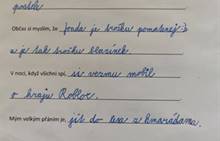 postele
Občas si myslím, že Jonda je trošku pomatenej
a je tak trošku blázínek.
V noci, když všichni spí, si vezmu mobil
a hraju Roblox.
Mým velkým přáním je, jít do lesa z kmarádama.